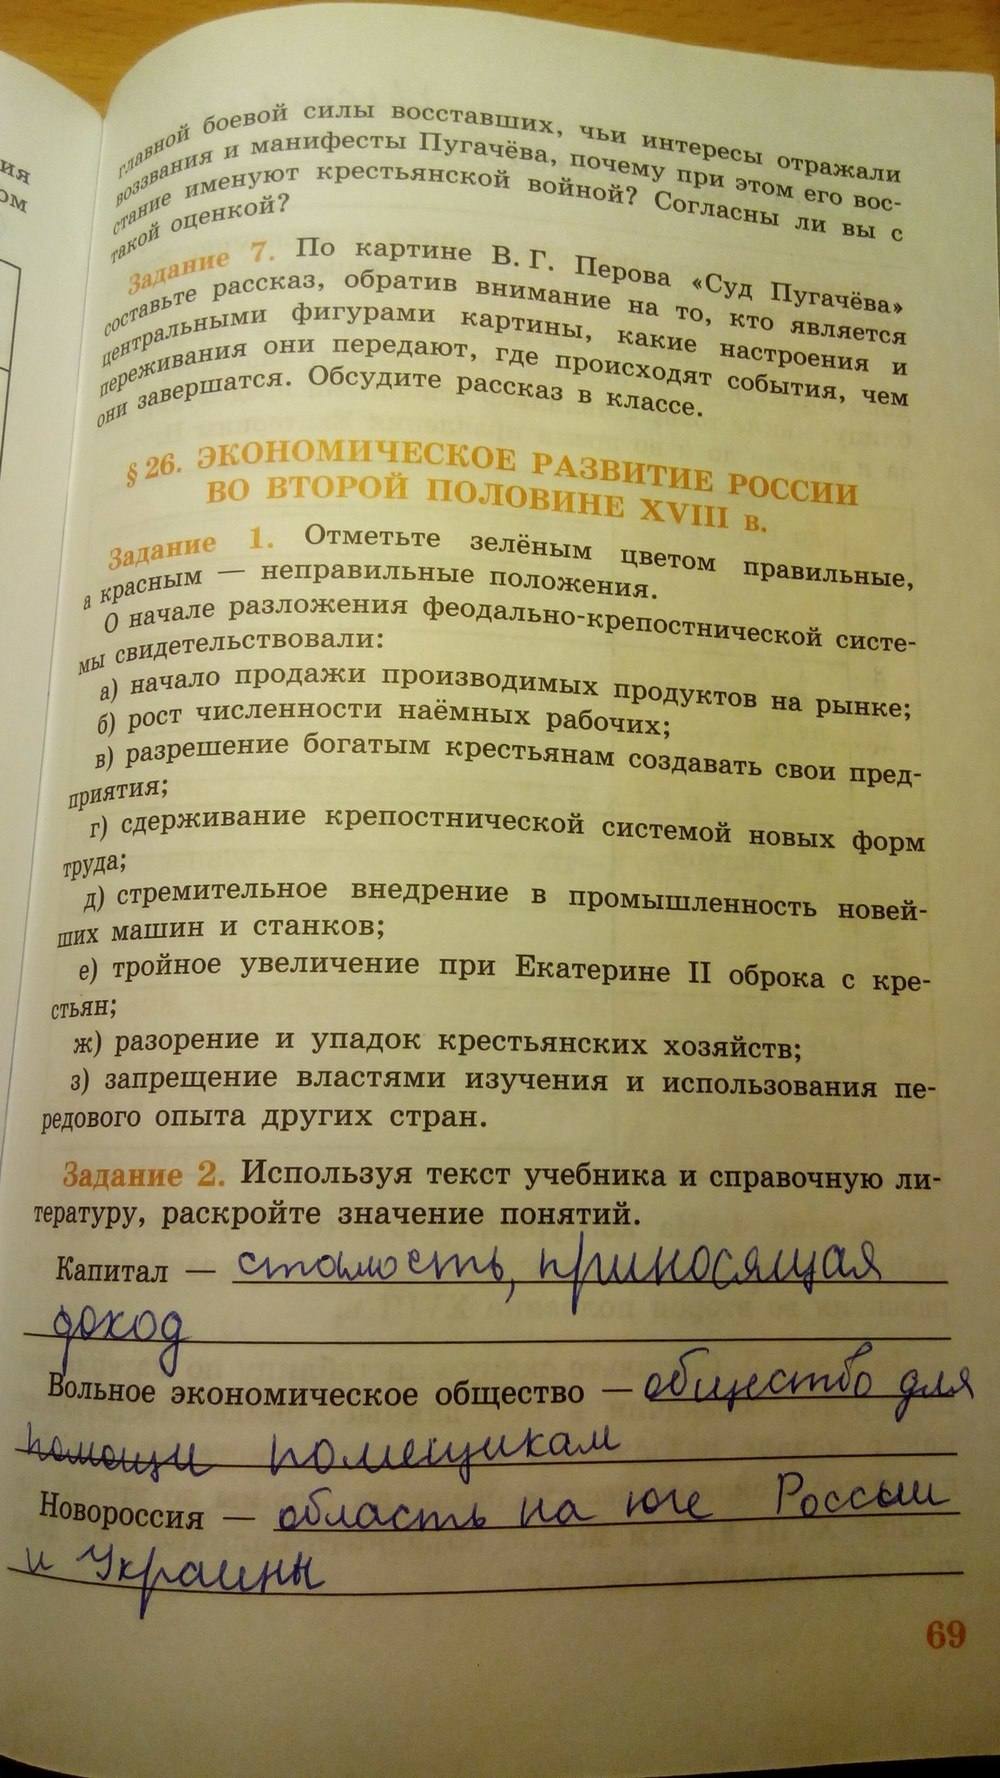 ия
ом
главной боевой силы восставших, чьи интересы отражали
воззвания и манифесты Пугачёва, почему при этом его вос-
стание именуют крестьянской войной? Согласны ли вы с
такой оценкой?
Задание 7. По картине В. Г. Перова «Суд Пугачёва»
составьте рассказ, обратив внимание на то, кто является
центральными фигурами картины, какие настроения и
переживания они передают, где происходят события, чем
они завершатся. Обсудите рассказ в классе.
§ 26. ЭКОНОМИЧЕСКОЕ РАЗВИТИЕ РОССИИ
ВО ВТОРОЙ ПОЛОВИНЕ XVIII в.
Задание 1. Отметьте зелёным цветом правильные,
а красным — неправильные положения.
О начале разложения феодально-крепостнической систе-
мы свидетельствовали:
а) начало продажи производимых продуктов на рынке;
б) рост численности наёмных рабочих;
в) разрешение богатым крестьянам создавать свои пред-
приятия;
г) сдерживание крепостнической системой новых форм
труда;
д) стремительное внедрение в промышленность новей-
ших машин и станков;
е) тройное увеличение при Екатерине II оброка с кре-
стьян;
ж) разорение и упадок крестьянских хозяйств;
з) запрещение властями изучения и использования пе-
редового опыта других стран.
Задание 2. Используя текст учебника и справочную ли-
тературу, раскройте значение понятий.
Капитал — стоимость, приносящая
доход
Вольное экономическое общество — общество для
помощи помещикам
Новороссия — область на юге России
и Украины
69